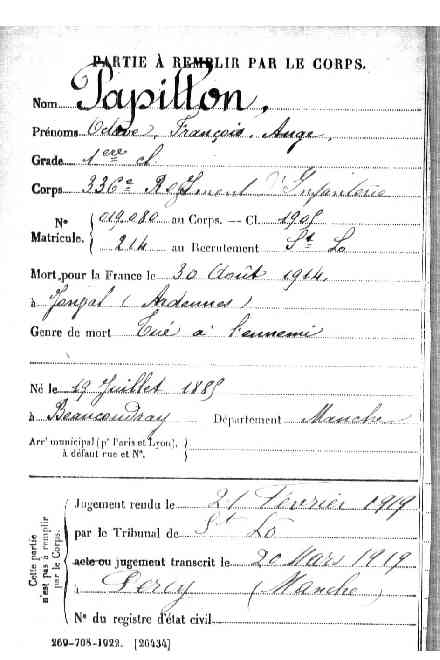 PARTIE À REMPLIR PAR LE CORPS.
Nom Papillon,
Prénoms Octave, François, Ange,
Grade 1ère cl.
Corps 336e Régiment d'Infanterie
N° Matricule. 019.080 au Corps. — Cl. 1905
214 au Recrutement St Lo
Mort pour la France le 30 Août 1914
à (Ardennes)
Genre de mort Tué à l'ennemi
Né le 19 Juillet 1885
à Beaucoudray Département Manche
Arr' municipal (p' Paris et Lyon),
à défaut rue et N°.
Cette partie n'est pas à remplir par le Corps.
Jugement rendu le 21 Février 1919
par le Tribunal de St Lo
acte ou jugement transcrit le 20 Mars 1919
Percy (Manche)
N° du registre d'état civil
269-708-1922. [26434]